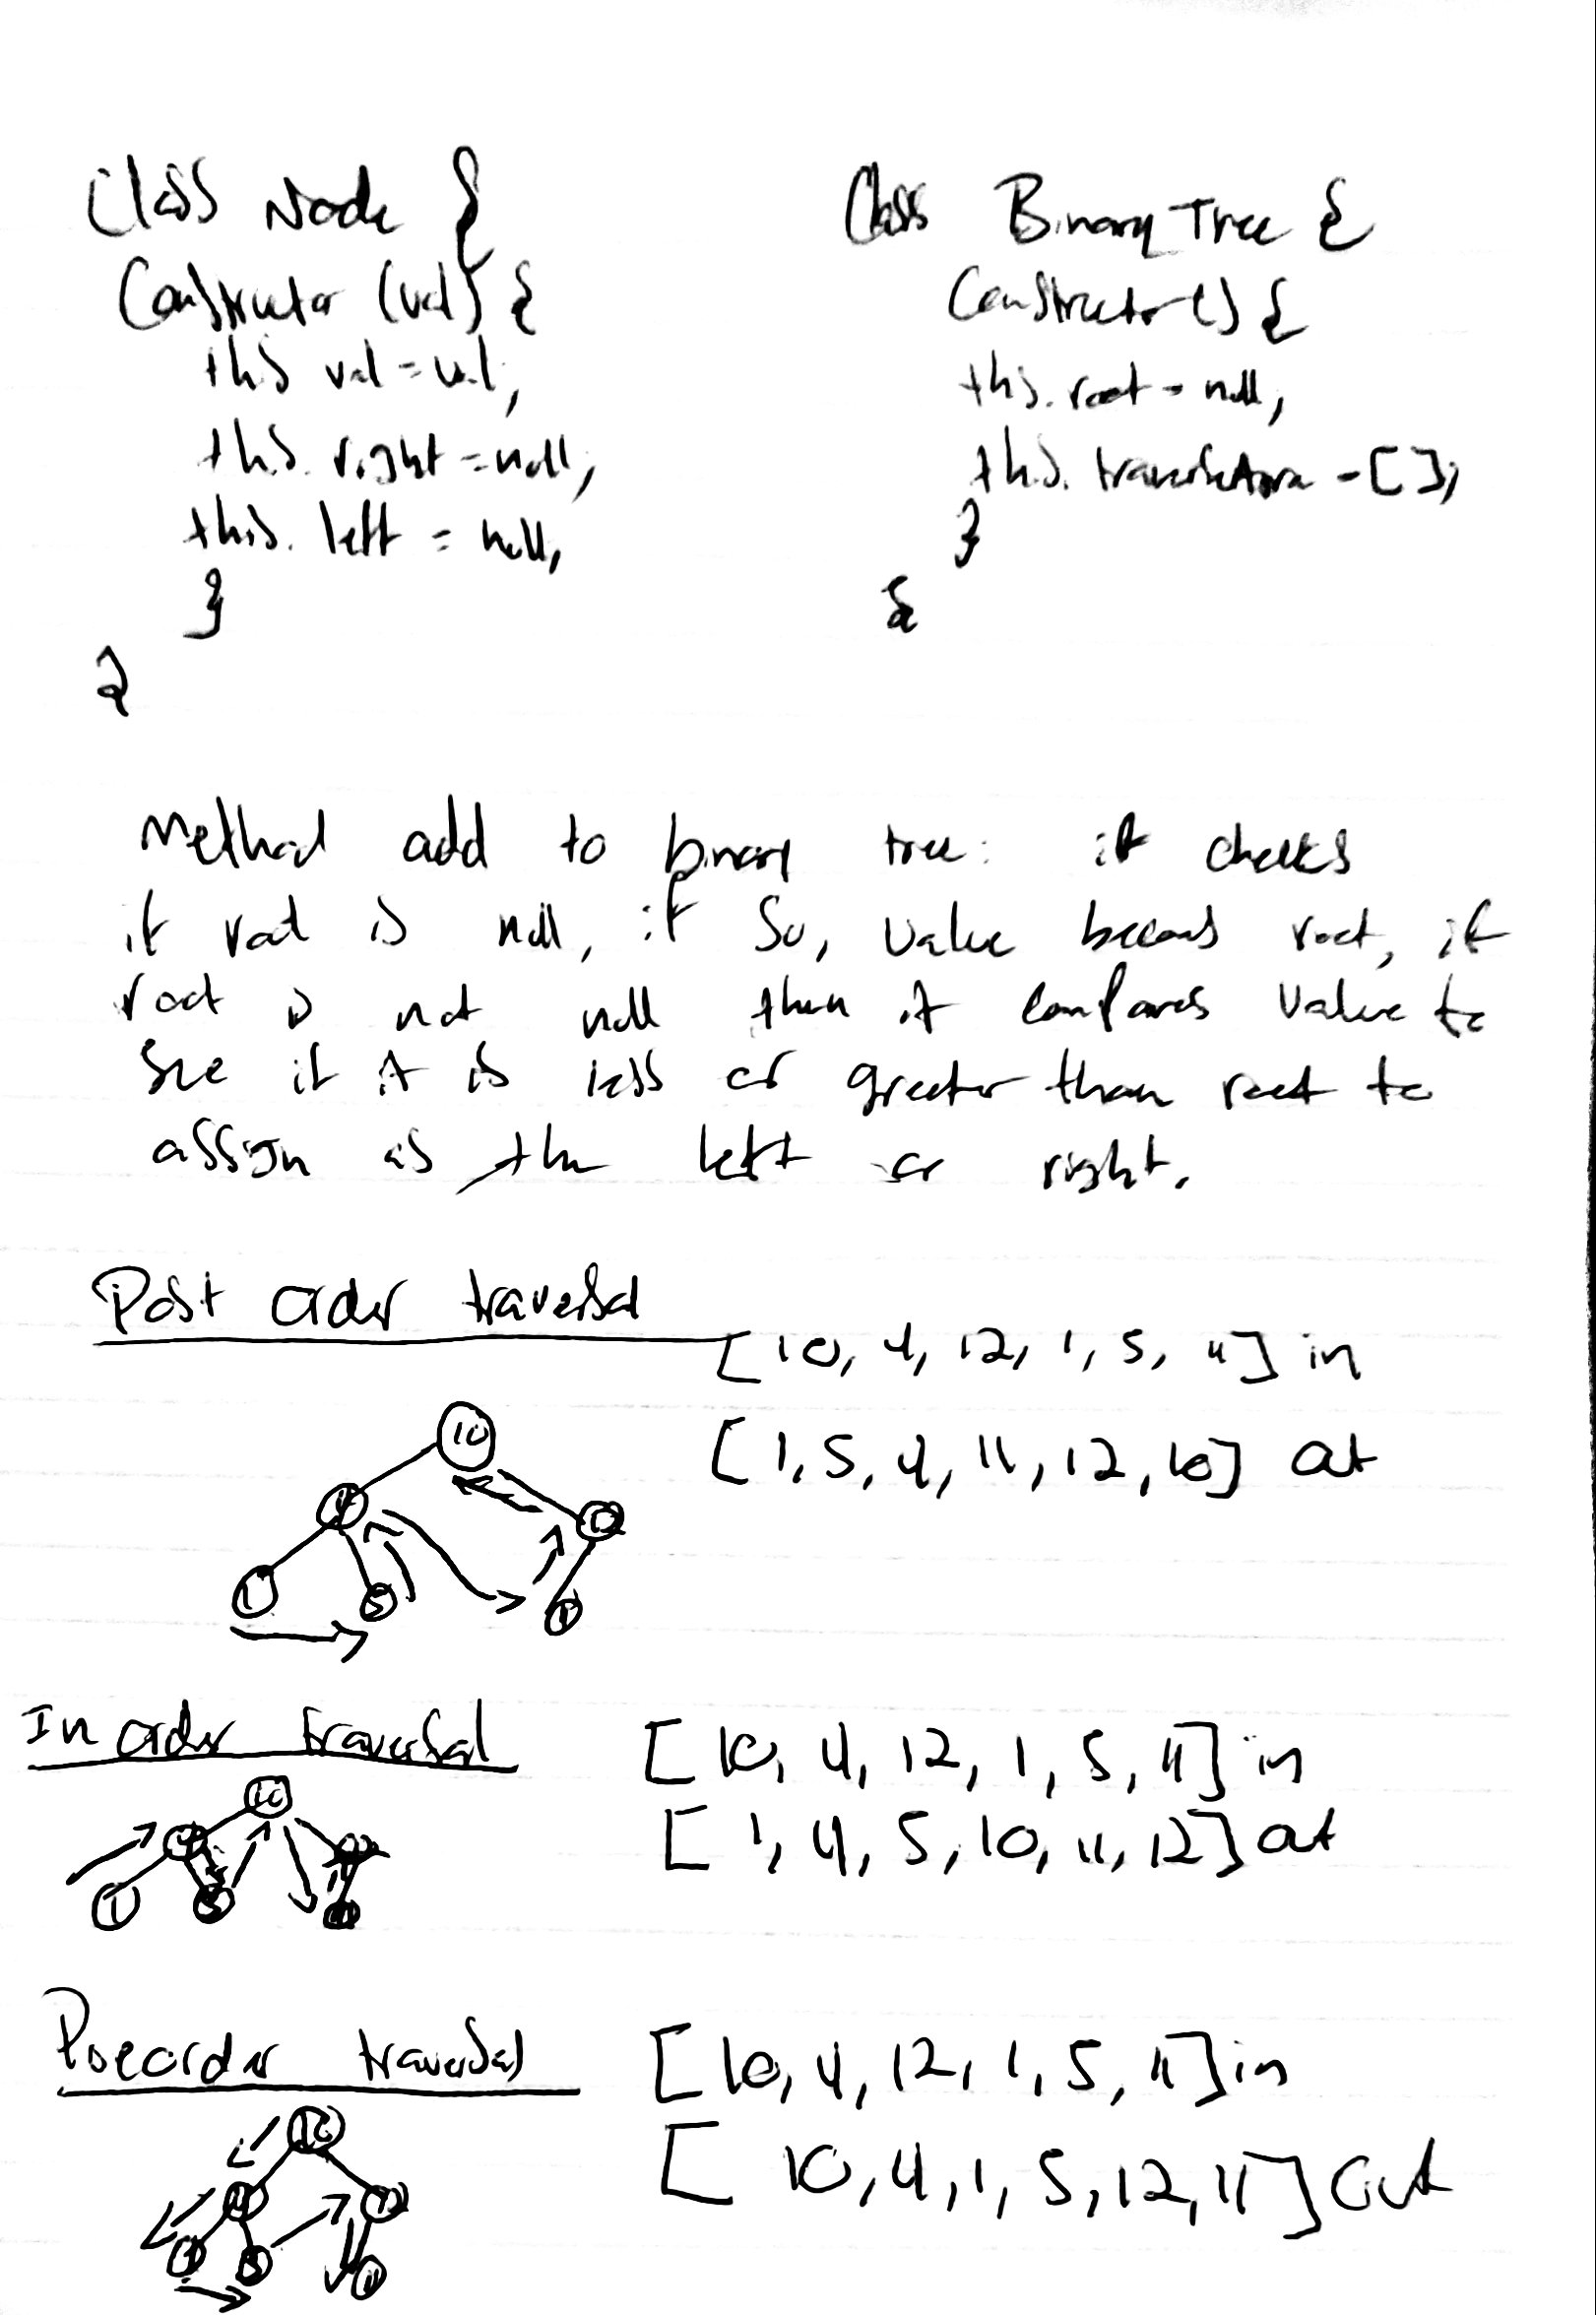 Class Node {
Constructor (val) {
this val = val,
this. right = null,
this. left = null,
}
}
Class Binary Tree {
Constructor () {
this. root = null,
this. = [ ];
}
}
Method add to binary tree: it checks
if root is null, if so, value becoms root, if
root is not null then it compares value to
see if it is less or greater than root to
assign as the left or right.
Post order traversal
[10, 4, 12, 1, 5, 11] in
[1, 5, 4, 11, 12, 10] out
10
4
12
1
5
11
In order traversal
[10, 4, 12, 1, 5, 11] in
[1, 4, 5, 10, 11, 12] out
10
4
12
1
5
11
Preorder traversal
[10, 4, 12, 1, 5, 11] in
[10, 4, 1, 5, 12, 11] out
10
4
12
1
5
11